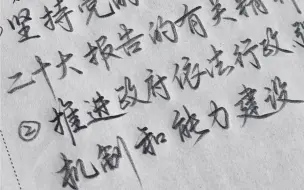 坚持党的
二十大报告的有关精神
② 推进政府依法行政
机制和能力建设